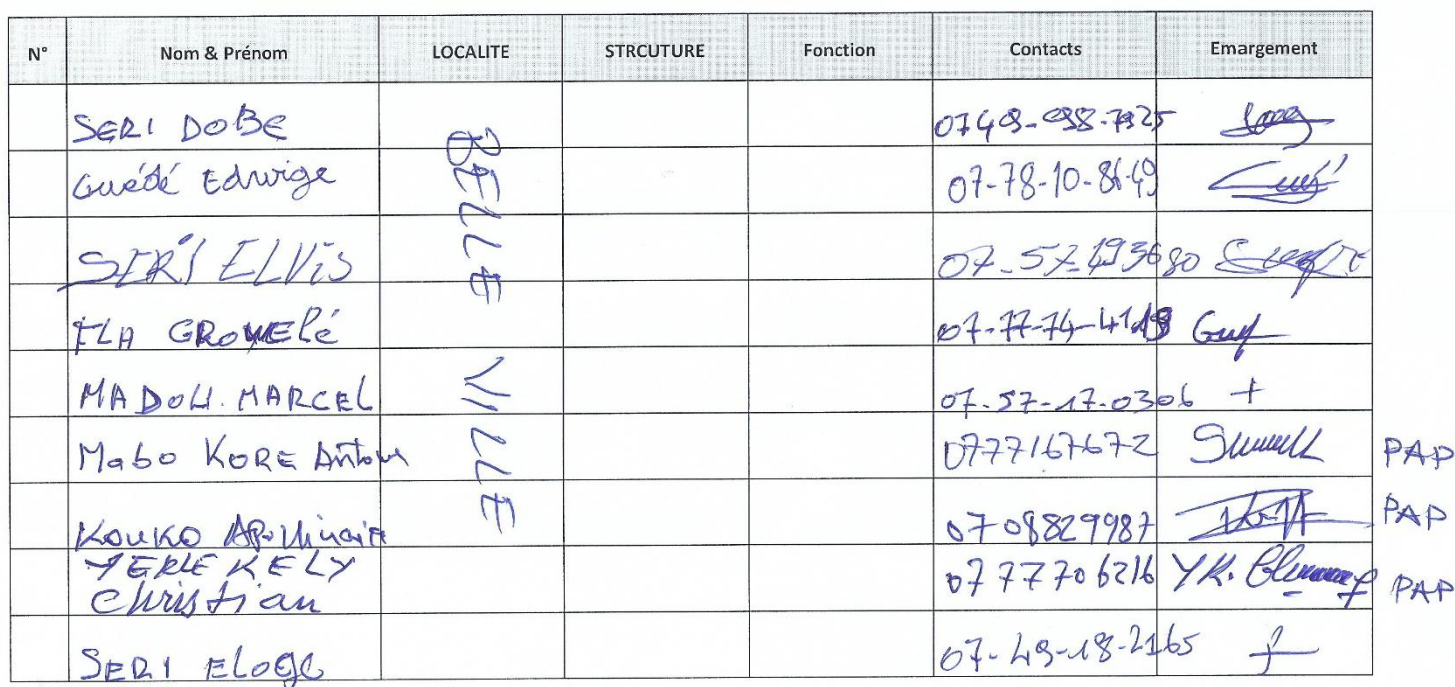 N° Nom & Prénom LOCALITE STRCUTURE Fonction Contacts Emargement
SERI DOBE
Guédé Edwige 07-78-10-86-49
SERI ELVIS 07-57-493680
FLA GROWELÉ 07-77-74-41
MADOU MARCEL 07-57-17-0306 +
Mabo KORE Antoine 0777167672 PAP
KOUKO Apollinaire 0708829987 PAP
YERLE KELY
Christian 0777706216 YK. PAP
SERI ELOGE 07-49-18-2165
BELLE VILLE